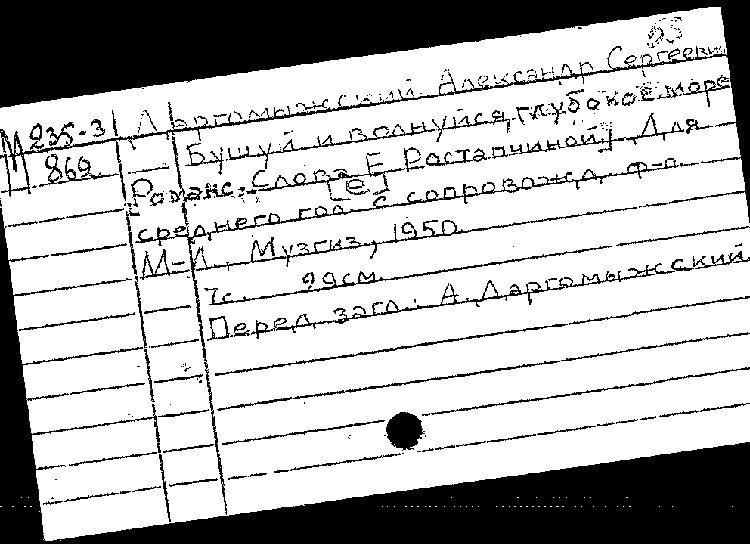 95
М 235-3 Даргомыжский Александр Сергеевич
869 Бушуй и волнуйся, глубокое море
[Романс. Слова Е. Растапчиной]. Для
[е]
среднего гол. с сопровожд. ф-п.
М-Л, Музгиз, 1950.
7с. 29см.
Перед загл.: А. Даргомыжский